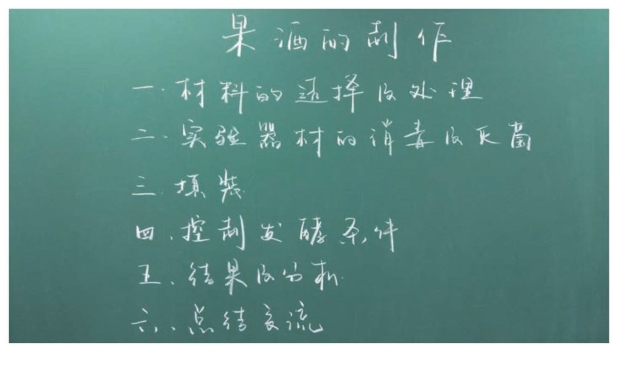 果酒的制作
一.材料的选择及处理
二.实验器材的消毒及灭菌
三.填装
四.控制发酵条件
五.结果及分析
六.总结交流